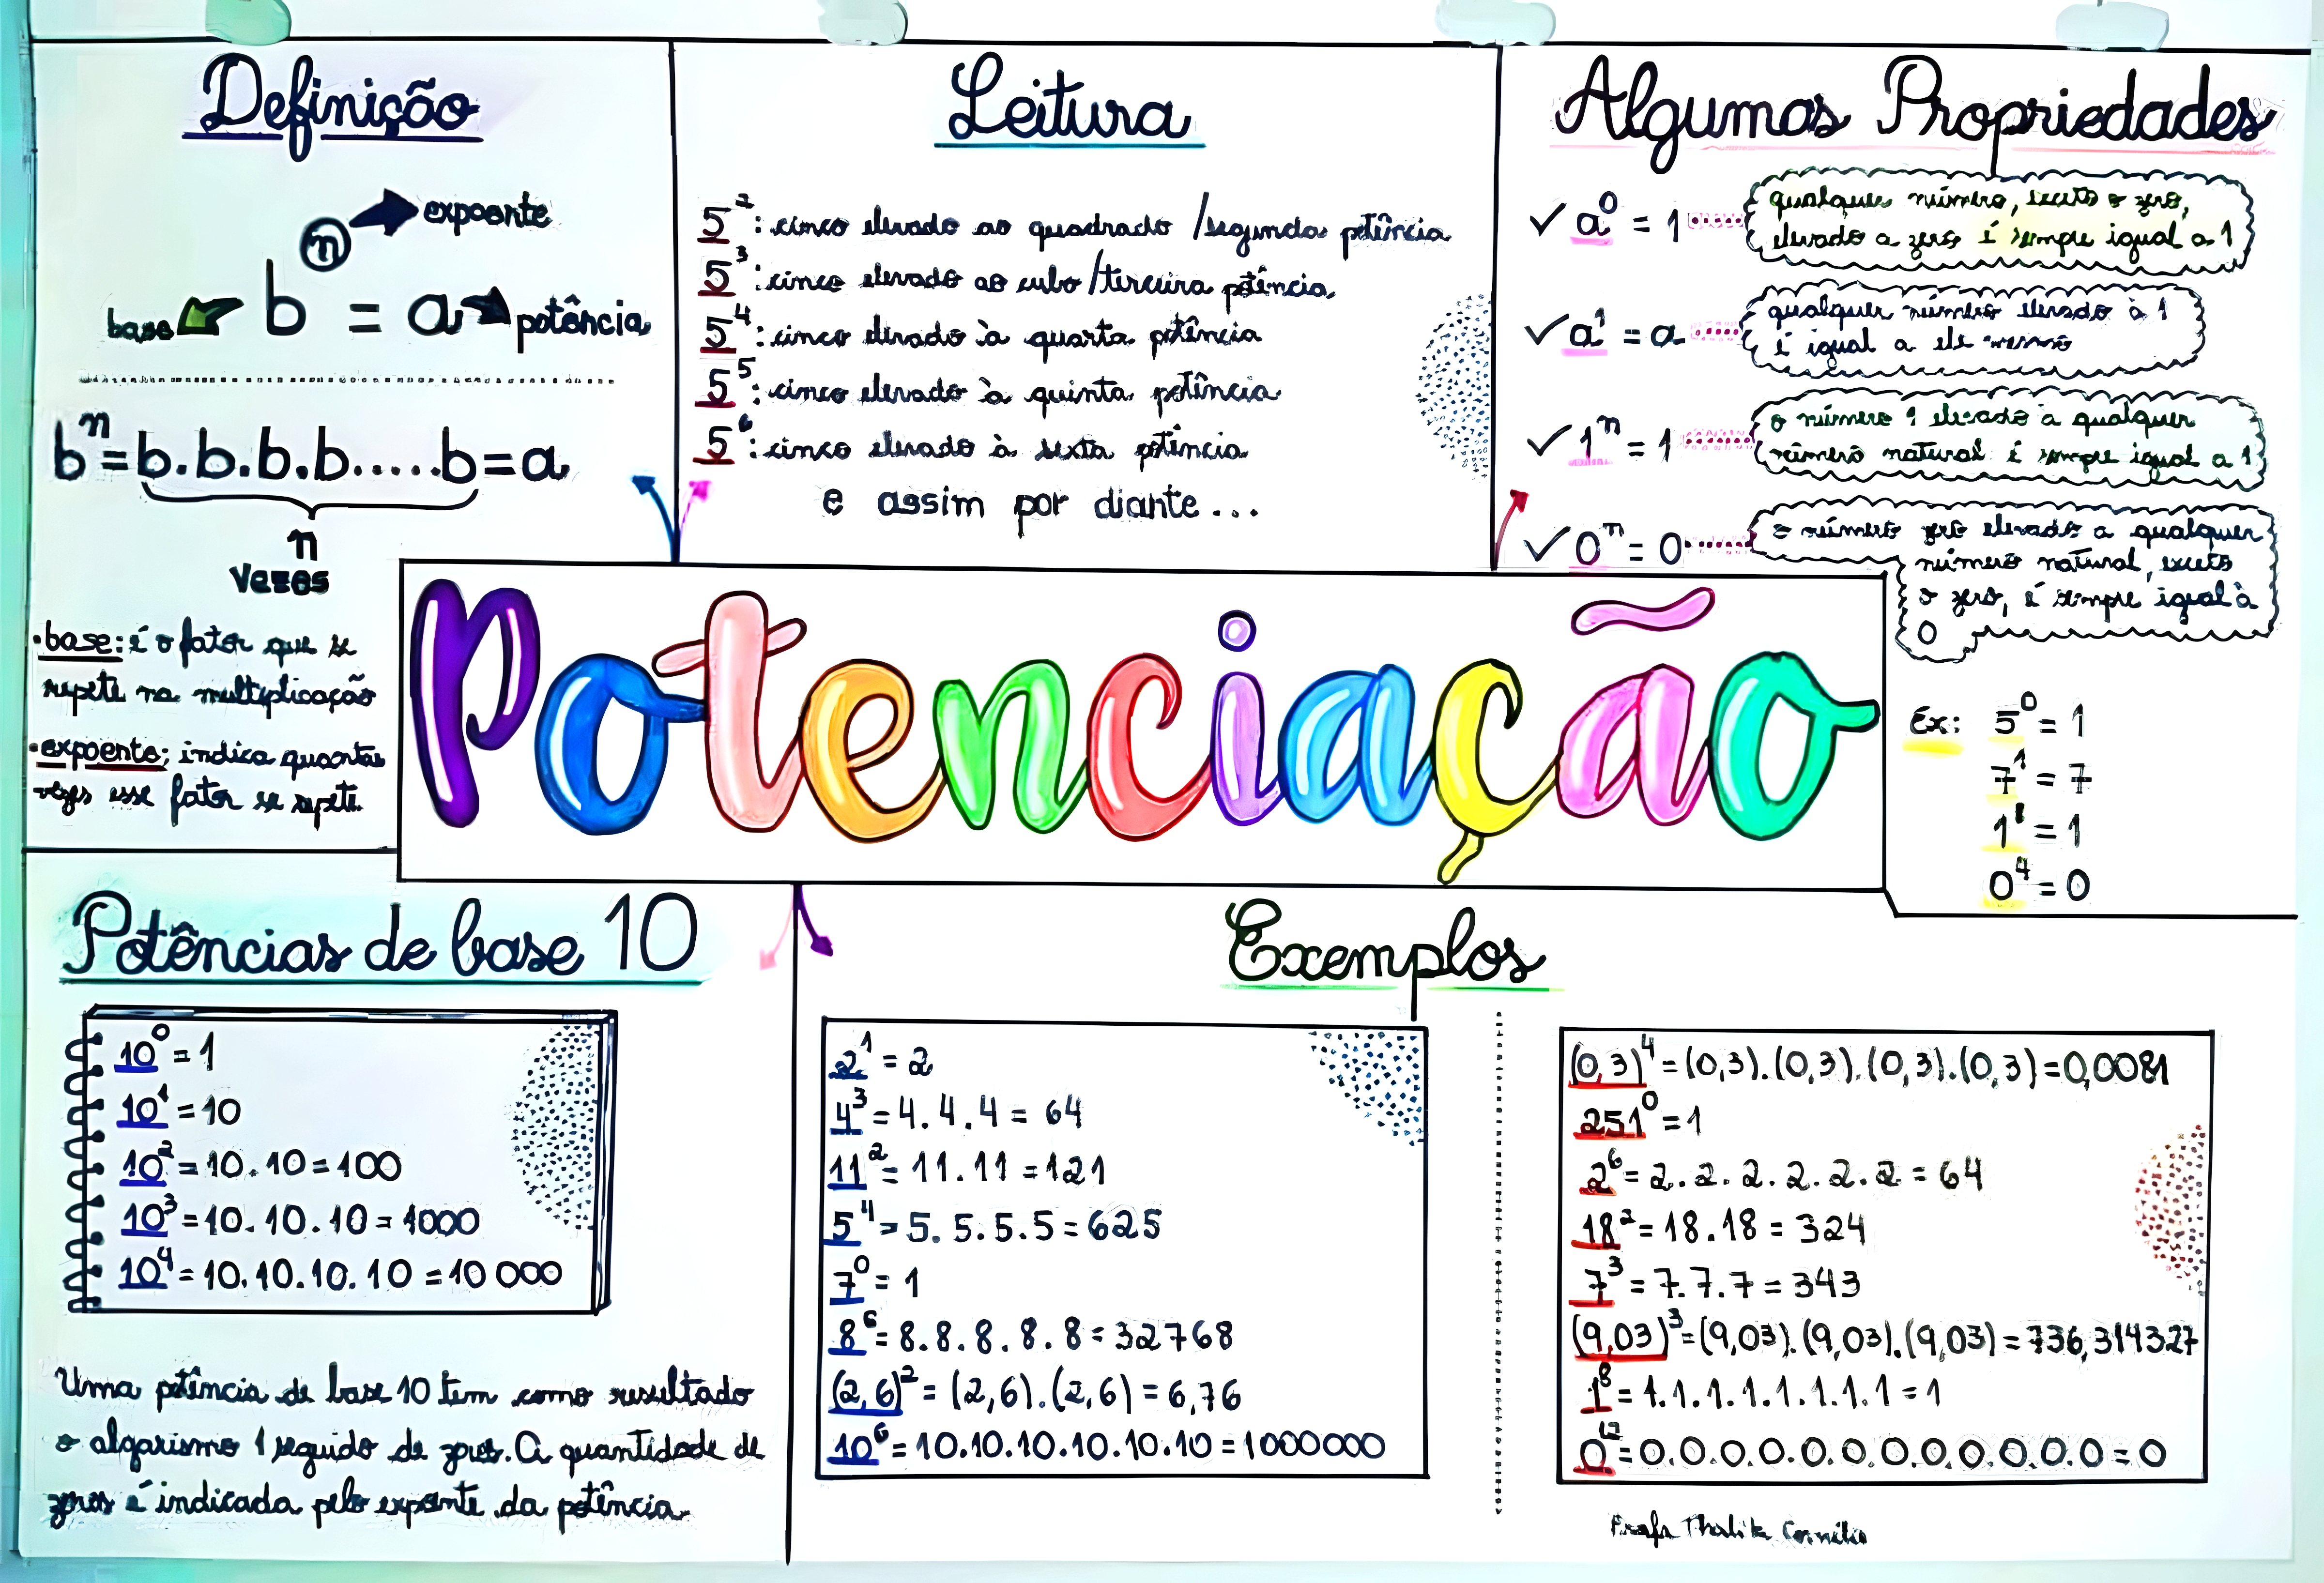 Definição
expoente
bⁿ = a
base
potência
bⁿ=b.b.b.b.....b=a
n
vezes
•base: é o fator que se
repete na multiplicação
•expoente: indica quantas
vezes esse fator se repete.
Leitura
5²: cinco elevado ao quadrado /segunda potência
5³: cinco elevado ao cubo /terceira potência
5⁴: cinco elevado à quarta potência
5⁵: cinco elevado à quinta potência
5⁶: cinco elevado à sexta potência
e assim por diante...
Algumas Propriedades
✓ a⁰ = 1
qualquer número, exceto o zero,
elevado a zero é sempre igual a 1
✓ a¹ = a
qualquer número elevado à 1
é igual a ele mesmo
✓ 1ⁿ = 1
o número 1 elevado a qualquer
número natural é sempre igual a 1
✓ 0ⁿ = 0
o número zero elevado a qualquer
número natural, exceto
o zero, é sempre igual à
0
Ex: 5⁰ = 1
7¹ = 7
1⁸ = 1
0⁴ = 0
Potenciação
Potências de base 10
10⁰ = 1
10¹ = 10
10² = 10.10 = 100
10³ = 10.10.10 = 1000
10⁴ = 10.10.10.10 = 10 000
Uma potência de base 10 tem como resultado
o algarismo 1 seguido de zeros. A quantidade de
zeros é indicada pelo expoente da potência.
Exemplos
2¹ = 2
4³ = 4.4.4 = 64
11² = 11.11 = 121
5⁴ = 5.5.5.5 = 625
7⁰ = 1
8⁶ = 8.8.8.8.8 = 32768
(2,6)² = (2,6).(2,6) = 6,76
10⁶ = 10.10.10.10.10.10 = 1000000
(0,3)⁴ = (0,3).(0,3).(0,3).(0,3) = 0,0081
251⁰ = 1
2⁶ = 2.2.2.2.2.2 = 64
18² = 18.18 = 324
7³ = 7.7.7 = 343
(9,03)³ = (9,03).(9,03).(9,03) = 736,314327
1⁸ = 1.1.1.1.1.1.1.1 = 1
0¹² = 0.0.0.0.0.0.0.0.0.0.0.0 = 0